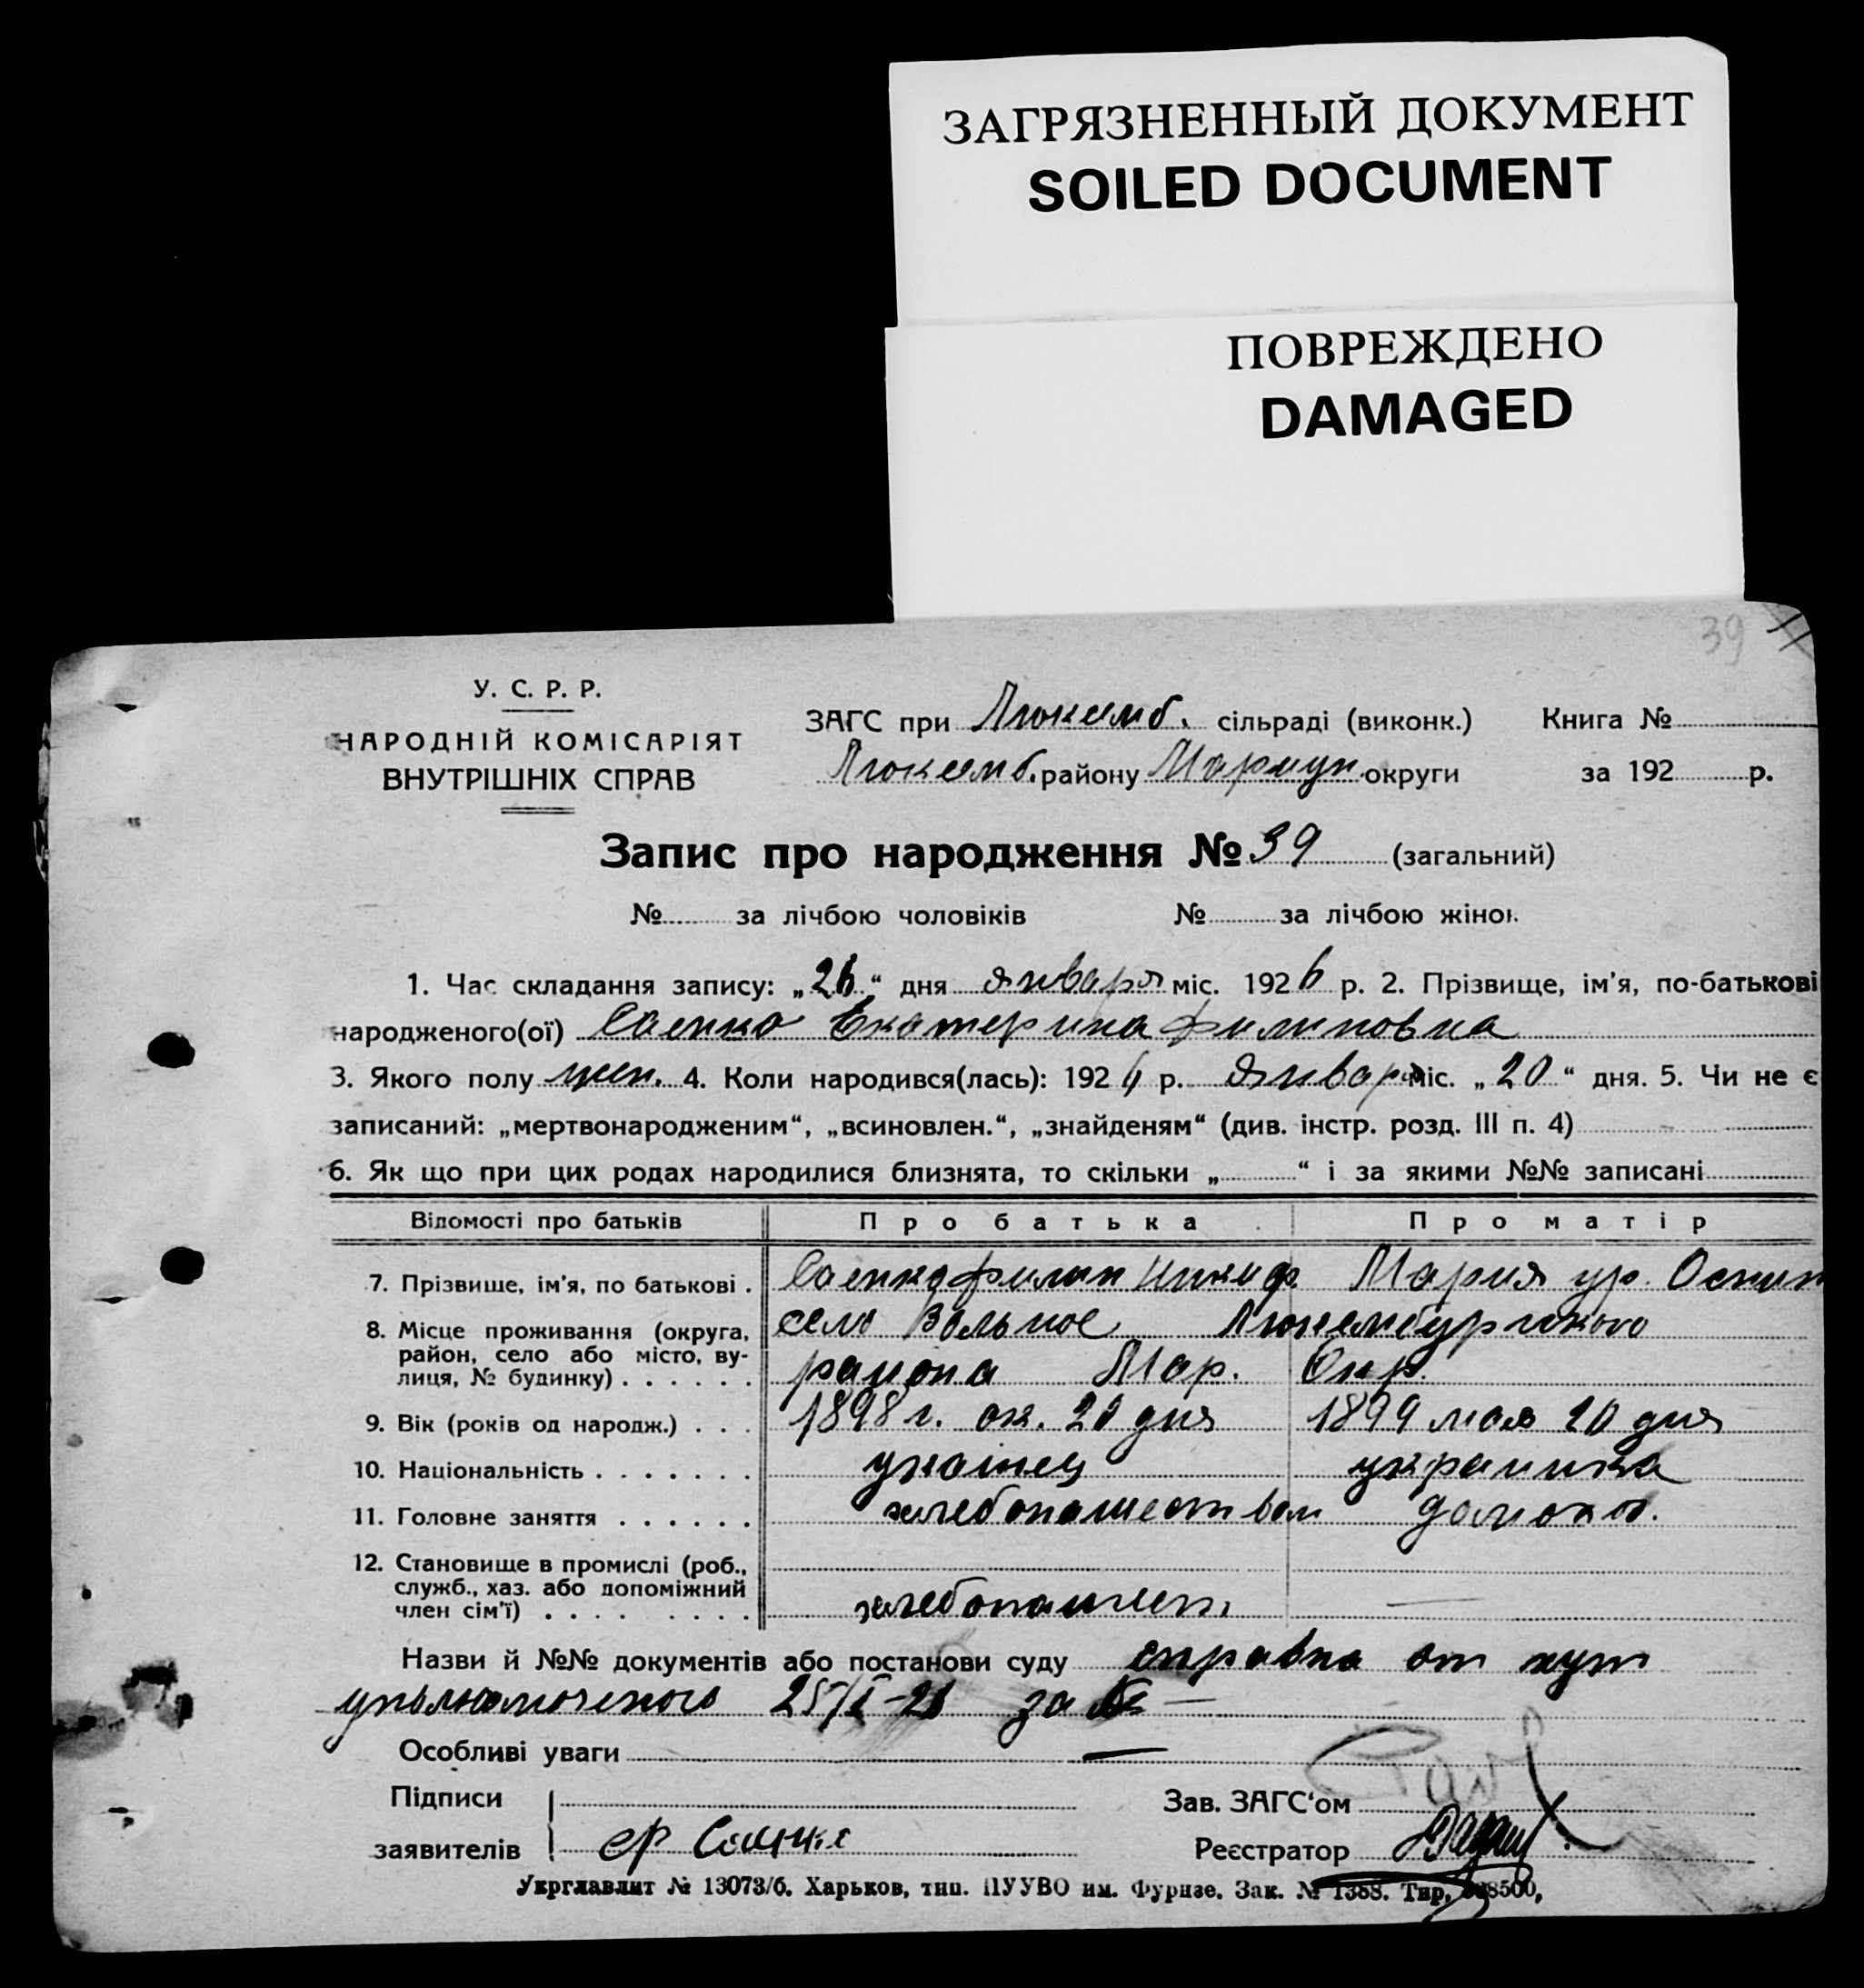 ЗАГРЯЗНЕННЫЙ ДОКУМЕНТ
SOILED DOCUMENT
ПОВРЕЖДЕНО
DAMAGED
39
У. С. Р. Р.
НАРОДНІЙ КОМІСАРІЯТ
ВНУТРІШНІХ СПРАВ
ЗАГС при Люксемб. сільраді (виконк.) Книга №
Люксемб. району Мариуп. округи за 192 р.
Запис про народження № 39 (загальний)
№ за лічбою чоловіків № за лічбою жінок
1. Час складання запису: „26“ дня января міс. 1926 р. 2. Прізвище, ім'я, по-батькові
народженого(ої) Саенко Екатерина Филиповна
3. Якого полу жен. 4. Коли народився(лась): 192 р. января міс. „20“ дня. 5. Чи не є
записаний: „мертвонародженим“, „всиновлен.“, „знайденям“ (див. інстр. розд. III п. 4)
6. Як що при цих родах народилися близнята, то скільки „ “ і за якими №№ записані
Відомості про батьків Про батька Про матір
7. Прізвище, ім'я, по батькові . Саенко Филип Никиф. Мария ур. Осип
8. Місце проживання (округа, район, село або місто, вулиця, № будинку) . . . . . . село Вольное Люксембургского
района Мар. Окр.
9. Вік (років од народж.) . . . 1898 г. ок. 20 дня 1899 мая 20 дня
10. Національність . . . . . . . украінец украинка
11. Головне заняття . . . . . . хлебопашеством домохоз.
12. Становище в промислі (роб., служб., хаз. або допоміжний член сім'ї) . . . . . . . . хлебопашест. —
Назви й №№ документів або постанови суду справка от хут
уполномоченого 25/I-26 за № —
Особливі уваги —
Підписи Зав. ЗАГС'ом
заявителів Саенко Реєстратор
Укрглавлит № 13073/б. Харьков, тип. ПУУВО им. Фрунзе. Зак. № 1388. Тир. 8500,